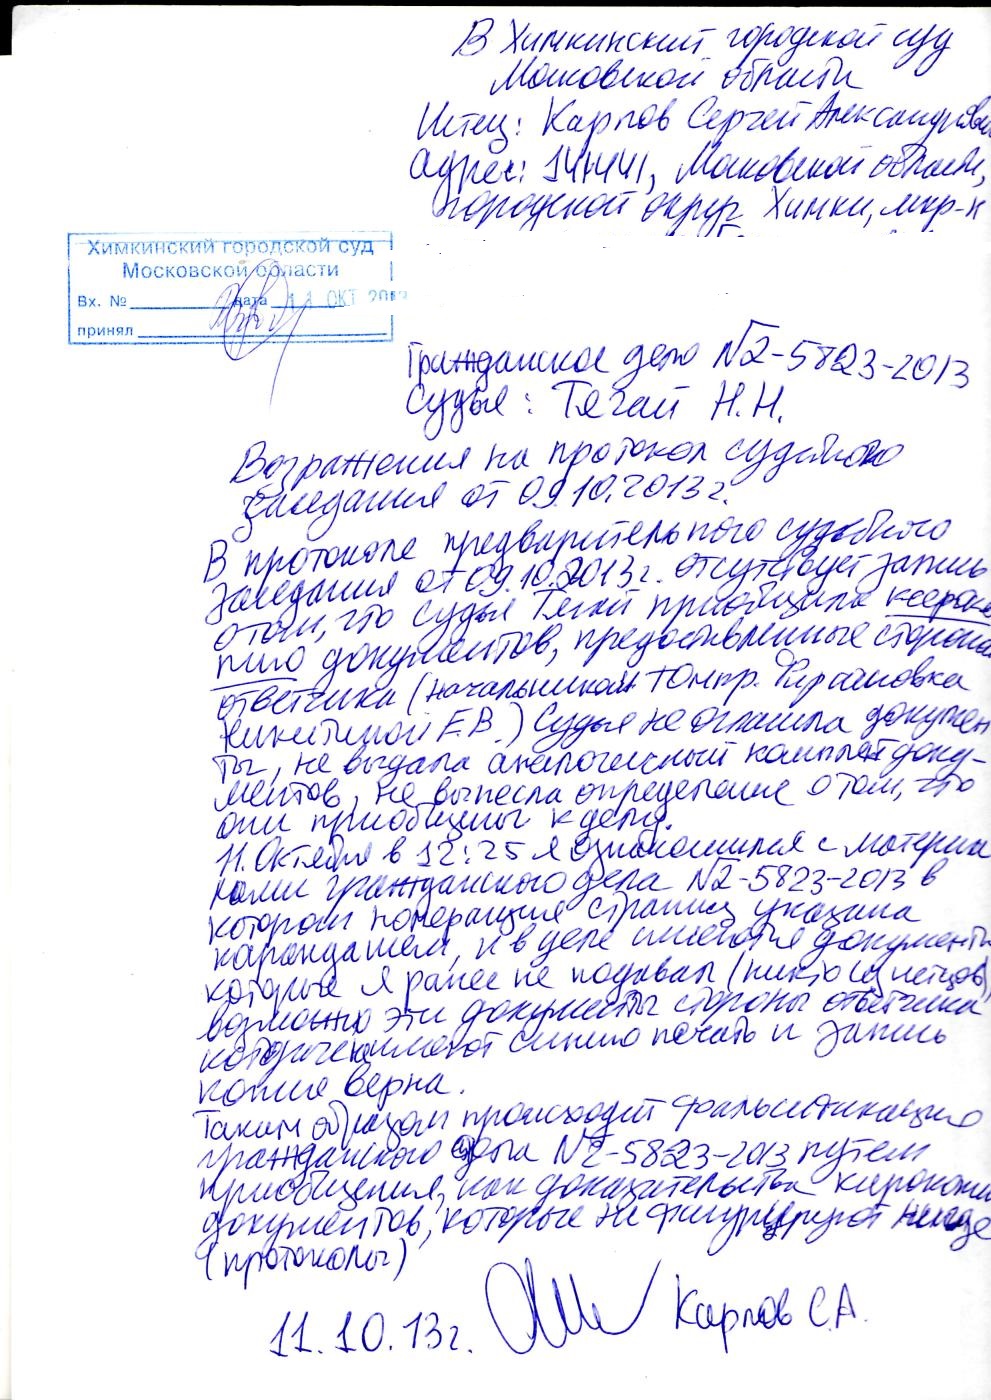 В Химкинский городской суд
Московской области
Истец: Карпов Сергей Александрович
Адрес: 141441, Московской области,
городской округ Химки, мкр-н
Химкинский городской суд
Московской области
Вх. № дата 11 ОКТ 2013
принял
Гражданское дело №2-5823-2013
Судья: Тягай Н.Н.
Возражения на протокол судебного
заседания от 09.10.2013г.
В протоколе предварительного судебного
заседания от 09.10.2013г. отсутствует запись
о том, что судья Тягай приобщила ксероко
пию документов, предоставленные стороной
ответчика (начальником Юнпр. Фирсановка
Никитиной Е.В.) Судья не огласила докумен
ты, не выдала аналогичный комплект доку-
ментов, не вынесла определение о том, что
они приобщены к делу.
11 Октября в 12:25 я ознакомился с материа
лами гражданского дела №2-5823-2013 в
котором нумерация страниц указана
карандашем, и в деле имеются документы
которые я ранее не подавал (никто из истцов),
возможно эти документы стороны ответчика
которые имеют синию печать и запись
копия верна.
Таким образом происходит фальсификация
гражданского дела №2-5823-2013 путем
приобщения, как доказательства ксерокопий
документов, которые не фигурируют нигде
(протоколы)
11.10.13г. Карпов С.А.